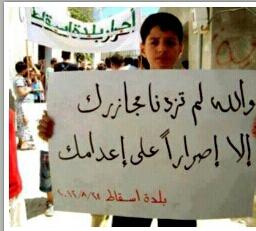 أحرار بلدة اسقاط
والله لم تزدنا مجازرك
إلا إصراراً على إعدامك
بلدة اسقاط ٢٠١٢/٨/٢٤